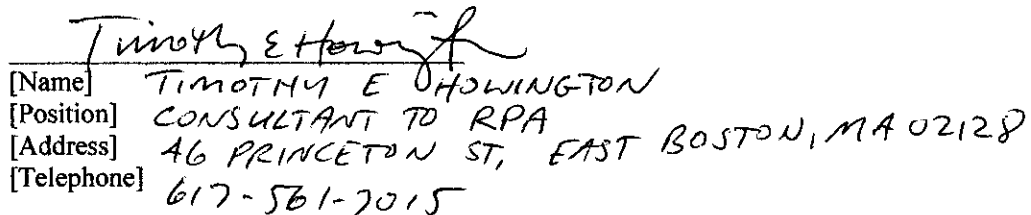 Timothy E Howington
[Name] TIMOTHY E HOWINGTON
[Position] CONSULTANT TO RPA
[Address] 46 PRINCETON ST, EAST BOSTON, MA 02128
[Telephone] 617-561-7015